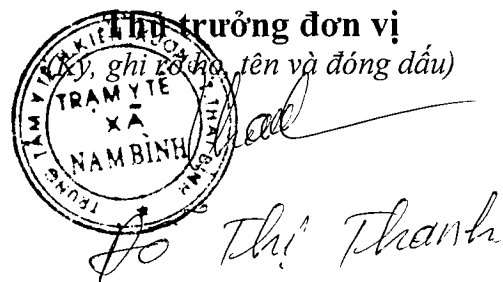 Thủ trưởng đơn vị
(Ký, ghi rõ họ, tên và đóng dấu)
TRUNG TÂM Y TẾ H. KIẾN XƯƠNG T. THÁI BÌNH
TRẠM Y TẾ
XÃ
NAM BÌNH
Đỗ Thị Thanh